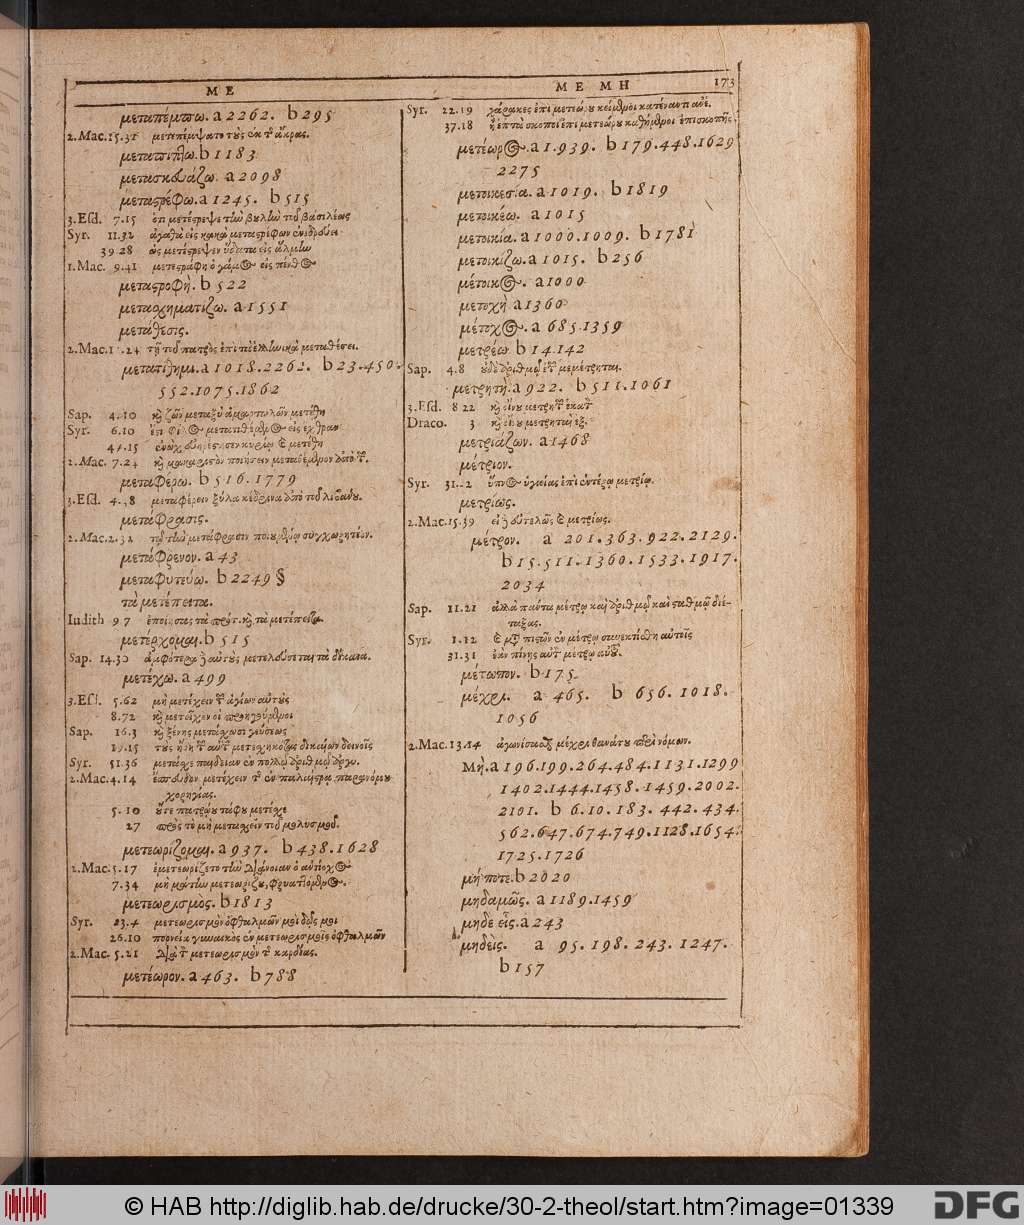 ΜΕ
μεταπέμπω. a 2262. b 295
2. Mac. 15.31 μετεπέμψατο τοὺς ἐκ τῆς ἄκρας.
μεταπίπτω. b 1183
μετασκευάζω. a 2098
μεταστρέφω. a 1245. b 515
3. Esd. 7.15 ὅτι μετέστρεψε τὴν βουλὴν τοῦ βασιλέως
Syr. 11.32 ἀγαθὰ εἰς κακὰ μεταστρέφων ἐνεδρεύει
39 28 ὡς μετέστρεψεν ὕδατα εἰς ἅλμην
1. Mac. 9.41 μετεστράφη ὁ γάμος εἰς πένθος
μεταστροφή. b 522
μετασχηματίζω. a 1551
μετάθεσις.
2. Mac. τῇ τοῦ πατρὸς ἐπὶ τὰ ἑλληνικὰ μεταθέσει.
μετατίθημι. a 1018. 2262. b 23. 450.
552. 1075. 1862
Sap. 4.10 καὶ ζῶν μεταξὺ ἁμαρτωλῶν μετέθη
Syr. 6.10 μετατιθέμενος εἰς ἔχθραν
ἐνὼχ εὐηρέστησεν κυρίῳ καὶ μετέθη
2. Mac. 7.24 καὶ μακαριστὸν ποιήσειν μεταθέμενον ἀπὸ τῶν.
μεταφέρω. b 516. 1779
3. Esd. μεταφέρειν ξύλα κέδρινα ἀπὸ τοῦ λιβάνου.
μετάφρασις.
2. Mac. 2.32 τὴν μετάφρασιν ποιουμένῳ συγχωρητέον.
μετάφρενον. a 43
μεταφυτεύω. b 2249 §
τὰ μετέπειτα.
Iudith 9 7 ἐποίησας τὰ πρότ. καὶ τὰ μετέπειτα.
μετέρχομαι. b 515
Sap. 14.30 ἀμφότερα δὲ αὐτοὺς μετελεύσεται τὰ δίκαια.
μετέχω. a 499
3. Esd. 5.62 μὴ μετέχειν τῶν ἁγίων αὐτοὺς
8.72 καὶ μετεῖχον οἱ προηγούμενοι
Sap. 16.3 καὶ ξένης μετάσχωσι γεύσεως
τοὺς ἤδη τῶν αὐτῶν μετεσχηκότας δικαίων δεινοῖς
Syr. 51.36 μετάσχετε παιδείαν ἐν πολλῷ ἀριθμῷ ἀργυ.
2. Mac. 4.14 ἔσπευδον μετέχειν τῆς ἐν παλαίστρᾳ παρανόμου
χορηγίας.
5.10 οὔτε πατρῴου τάφου μετέσχε
27 πρὸς τὸ μὴ μετασχεῖν τοῦ μολυσμοῦ.
μετεωρίζομαι. a 937. b 438. 1628
2. Mac. 5.17 ἐμετεωρίζετο τὴν διάνοιαν ὁ αντίοχος
7.34 μὴ μάτην μετεωρίζου, φρυαττόμενος.
μετεωρισμὸς. b 1813
Syr. 23.4 μετεωρισμὸν ὀφθαλμῶν μὴ δῷς μοι
26.10 πορνεία γυναικὸς ἐν μετεωρισμοῖς ὀφθαλμῶν
2. Mac. 5.21 διὰ τὸν μετεωρισμὸν τῆς καρδίας.
μετέωρον. a 463. b 788
ΜΕ ΜΗ 173
Syr. 22.19 χάρακες ἐπὶ μετεώρου κείμενοι κατέναντι ἀνέ.
37.18 ἢ ἑπτὰ σκοποὶ ἐπὶ μετεώρου καθήμενοι ἐπισκοπῆς.
μετέωρος. a 1. 939. b 179. 448. 1629
2275
μετοικεσία. a 1019. b 1819
μετοικέω. a 1015
μετοικία. a 1000. 1009. b 1781
μετοικίζω. a 1015. b 256
μέτοικος. a 1000
μετοχὴ a 1360
μέτοχος. a 685. 1359
μετρέω b 14. 142
Sap. 4.8 οὐδὲ ἀριθμῷ ἐτῶν μεμέτρηται.
μετρητὴ. a 922. b 511. 1061
3. Esd. 8 22 καὶ οἴνου μετρητῶν ἑκατὸν
Draco. 3 καὶ οἴνου μετρηταὶ ἕξ.
μετριάζων. a 1468
μέτριον.
Syr. ὕπνος ὑγιείας ἐπὶ ἐντέρῳ μετρίῳ.
μετρίως.
2. Mac. 15.39 εἰ δὲ εὐτελῶς καὶ μετρίως.
μέτρον. a 201. 363. 922. 2129.
b 15. 511. 1360. 1533. 1917.
2034
Sap. 11.21 ἀλλὰ πάντα μέτρῳ καὶ ἀριθμῷ καὶ σταθμῷ διέ-
ταξας.
Syr. 1.12 καὶ μετὰ πιστῶν ἐν μέτρῳ συνεκτίσθη αὐτοῖς
31.31 ἐὰν πίνῃς αὐτὸν μέτρῳ αὐτοῦ.
μέτωπον. b 175.
μέχρι. a 465. b 656. 1018.
1056
2. Mac. 13.14 ἀγωνίσασθαι μέχρι θανάτου περὶ νόμων.
Μὴ. a 196. 199. 264. 484. 1131. 1299
1402. 1444. 1458. 1459. 2002.
2101. b 6. 10. 183. 442. 434.
562. 647. 674. 749. 1128. 1654.
1725. 1726
μή ποτε. b 2020
μηδαμῶς. a 1189. 1459
μηδὲ εἷς. a 243
μηδεὶς. a 95. 198. 243. 1247.
b 157
© HAB http://diglib.hab.de/drucke/30-2-theol/start.htm?image=01339
DFG